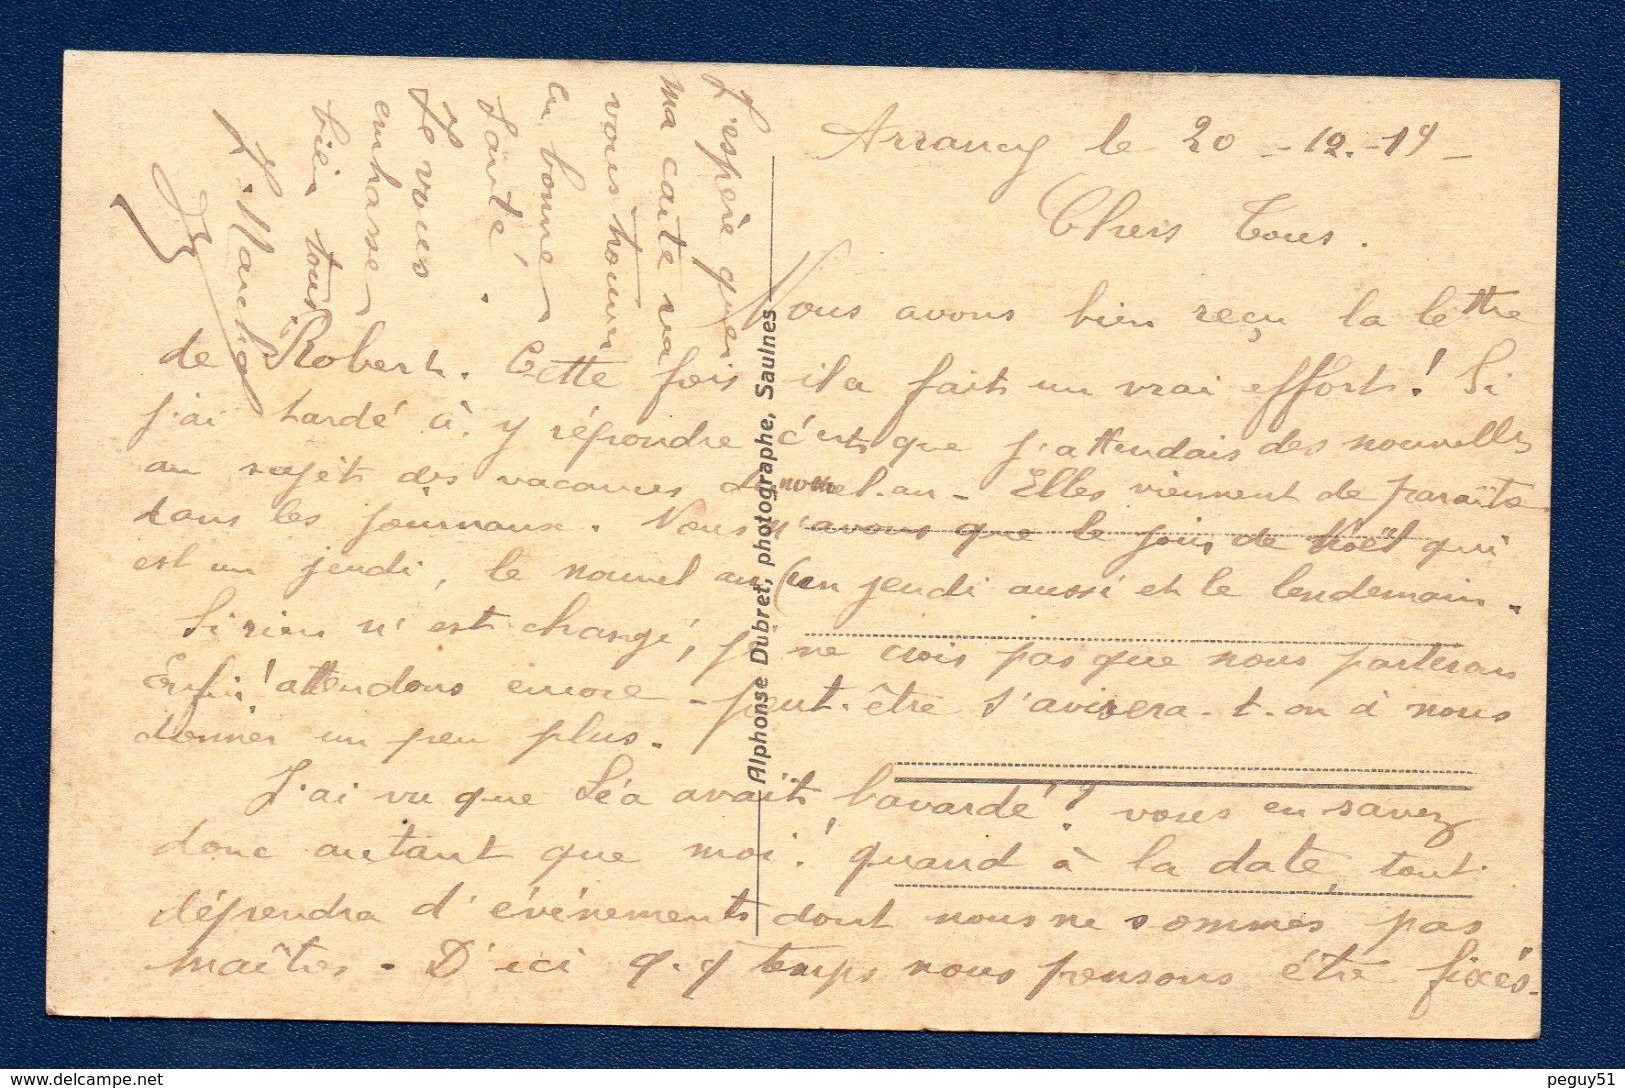 Arrancy le 20 - 12 - 19 -
Chers Tous.
Nous avons bien reçu la lettre
de Robert. Cette fois il a fait un vrai effort! Si
j'ai tardé à y répondre c'est que j'attendais des nouvelles
au sujet des vacances du nouvel-an - Elles viennent de paraître
dans les journaux. Nous n'avons que le jour de Noël qui
est un jeudi, le nouvel an (un jeudi aussi et le lendemain.
Si rien n'est changé, je ne crois pas que nous partirons
Enfin! attendons encore - peut-être s'avisera-t-on à nous
donner un peu plus.
J'ai vu que Léa avait bavardé? vous en savez
donc autant que moi! quand à la date, tout
dépendra d'événements dont nous ne sommes pas
maîtres - D'ici q.q temps nous pensons être fixés.
J'espère que
ma carte va
vous trouver
en bonne
santé,
Je vous
embrasse
bien tous
Marchal
Alphonse Dubret, photographe, Saulnes
peguy51